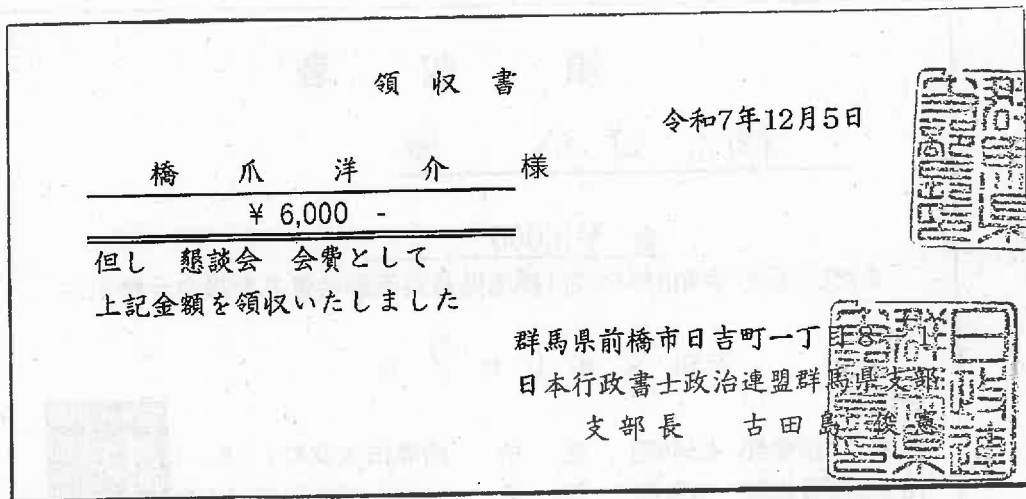 領収書
令和7年12月5日
橋爪洋介様
¥ 6,000 -
但し 懇談会 会費として
上記金額を領収いたしました
群馬県前橋市日吉町一丁目8-1
日本行政書士政治連盟群馬県支部
支部長 古田島 俊憲